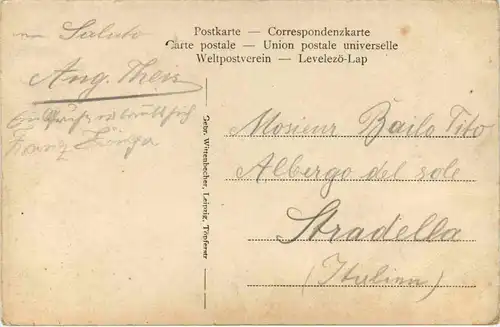 Postkarte — Correspondenzkarte
Carte postale — Union postale universelle
Weltpostverein — Levelezö-Lap
un Saluto
Aug. Theis
Mosieur Bailo Tito
Albergo del sole
Stradella
(Italien)
Gebr. Wittenbecher, Leipzig, Töpferstr